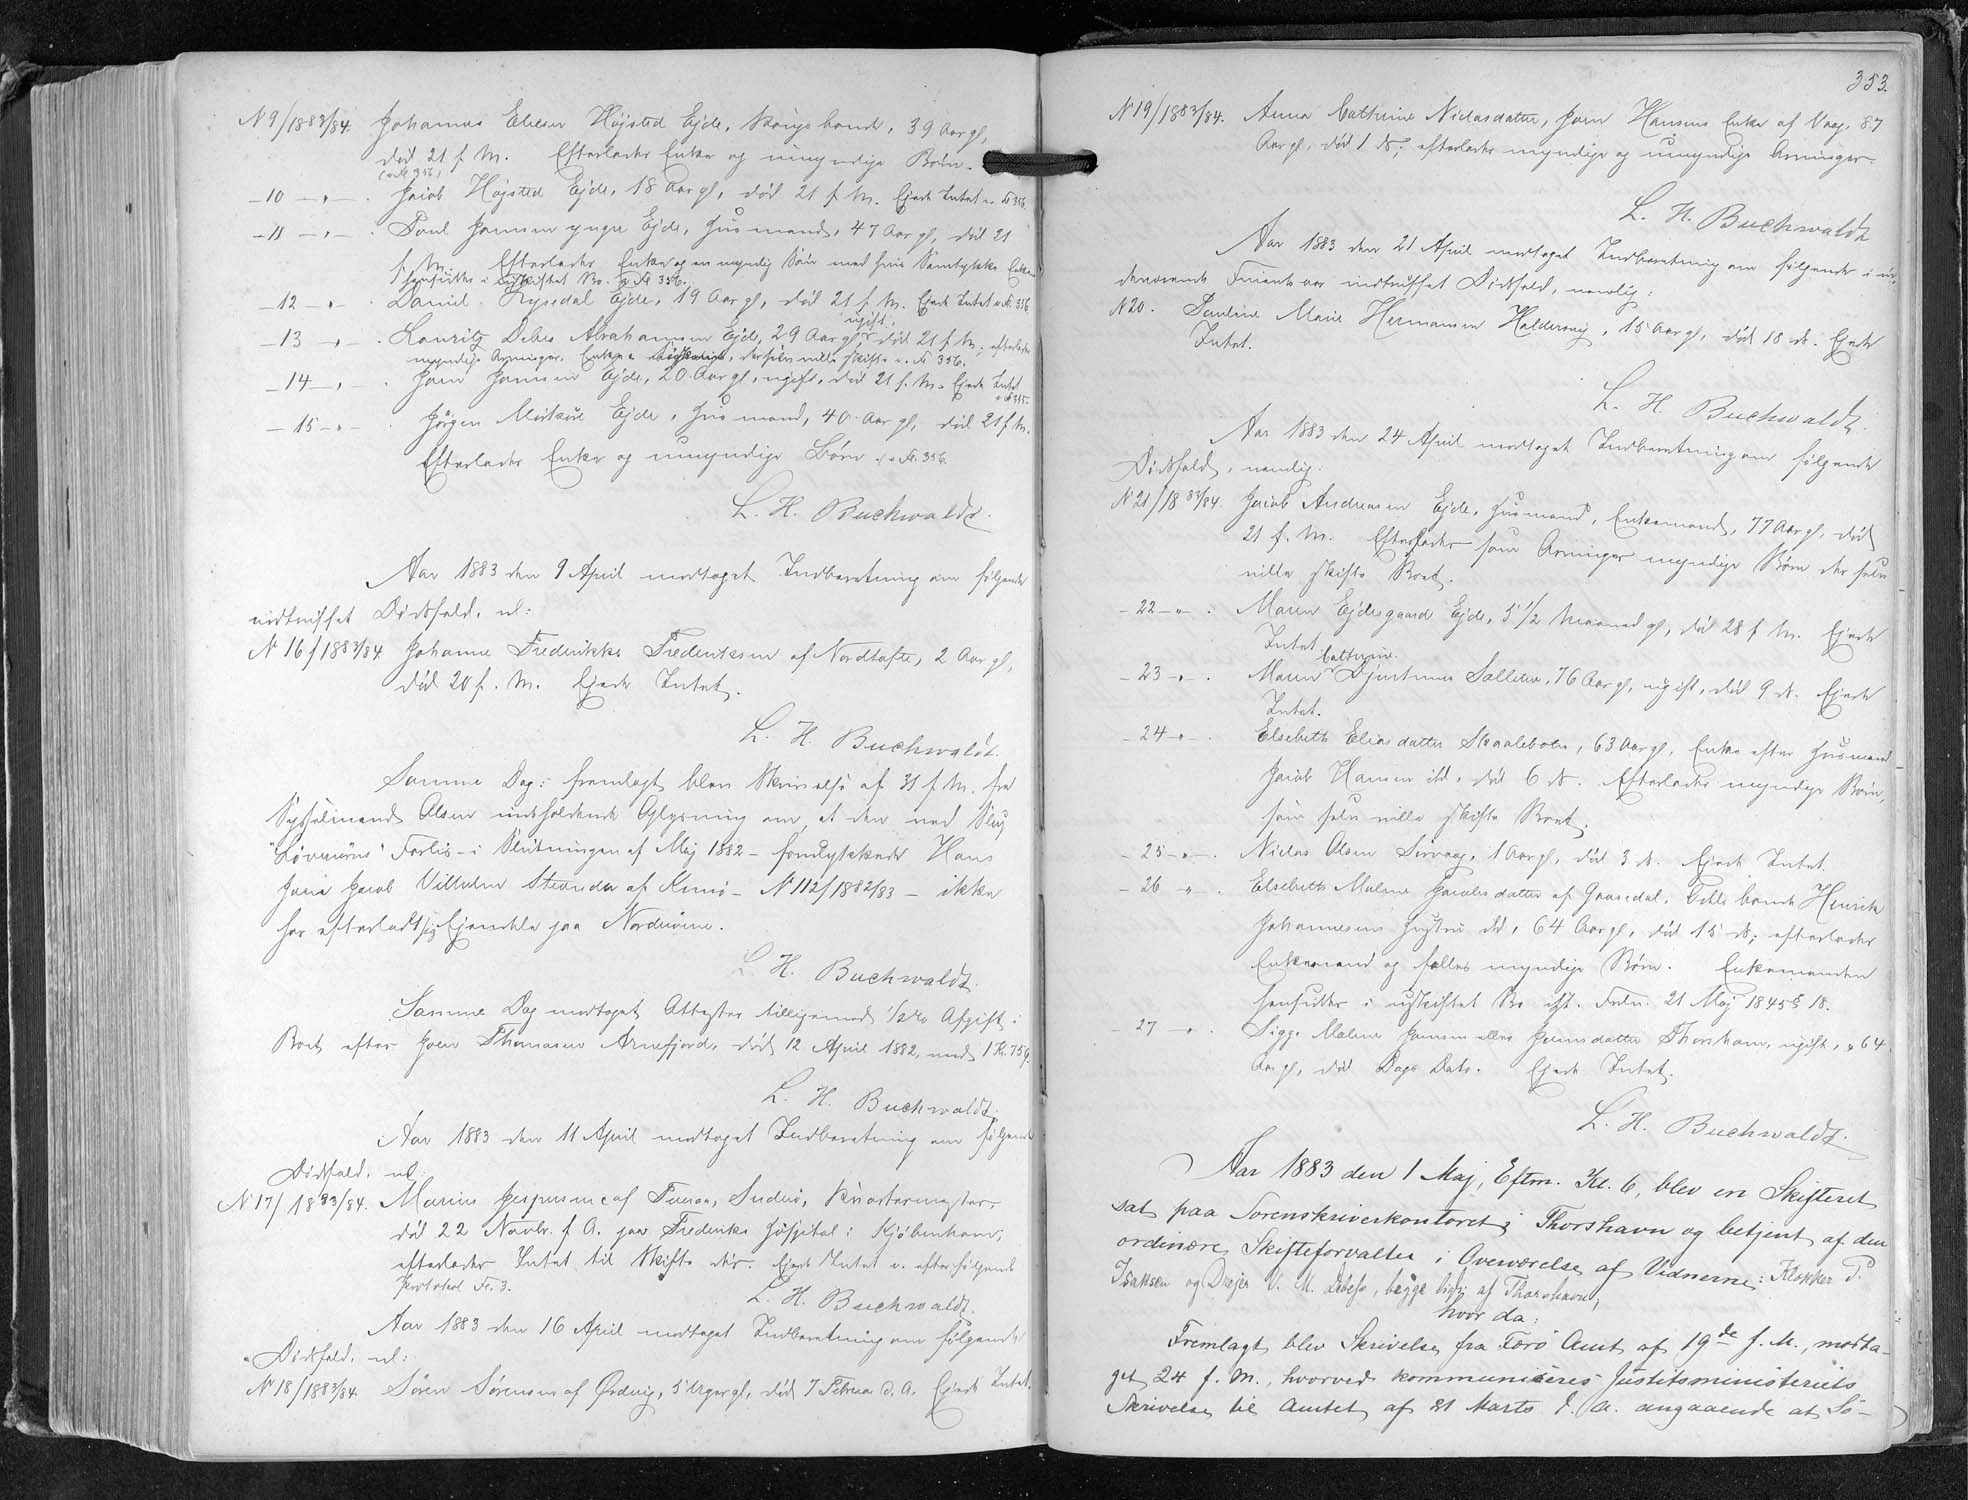 N 9/1883/84. Johannes Eliesen Højsted Ejde, Kongsbonde, 39 Aar gl,
død 21 f. M. Efterlader Enke og umyndige Børn.
(v. Fo 356)
-10 -"- . Jacob Højsted Ejde, 18 Aar gl, død 21 f M. Ejede Intet v. Fo 356.
-11 -"- . Poul Joensen yngre Ejde, Husmand, 47 Aar gl, død 21
f. M. Efterlader Enke og en myndig Søn med hvis Samtykke Enken
hensidder i uskiftet Bo. v Fo 356.
-12 -"- . Daniel Rysedal Ejde, 19 Aar gl, død 21 f. M. Ejede Intet v. Fo 356
-13 -"- . Lauritz Debes Abrahamsen Ejde, 29 Aar gl, ugift, død 21 f. M., efterlader
myndige Arvinger. , der selv ville skifte v. Fo 356.
-14 -"- . Joen Joensen Ejde, 20 Aar gl, ugift, død 21 f. M. Ejede Intet
-15 -"- . Jørgen Ejde, Husmand, 40 Aar gl, død 21 f M.
Efterlader Enke og umyndige Børn v. Fo. 356
L. H. Buchwaldt.
Aar 1883 den 9 April modtaget Indberetning om følgende
indtruffet Dødsfald, nl:
N 16/1883/84 Johanne Frederikke Frederiksen af Nordtofte, 2 Aar gl,
død 20 f. M. Ejede Intet.
L. H. Buchwaldt.
Samme Dag: fremlagt blev Skrivelse af 31 f M. fra
Sysselmand Olsen indeholdende Oplysning om, at den ved Slup
"Løvenørns" Forlis - i Slutningen af Maj 1882 - forulykkede Hans
Jacob Vilhelm af Kunø - N 112/1882/83 - ikke
har efterladt sig Ejendele paa Norderøerne.
L. H. Buchwaldt.
Samme Dag modtaget Attester tilligemed 1/2 % Afgift i
Boet efter Joen Thomasen Arnefjord, død 12 April 1882, med 1 Kr. 75 Ø.
L. H. Buchwaldt.
Aar 1883 den 11 April modtaget Indberetning om følgende
Dødsfald, nl:
N 17/1883/84. Marius Jespersen af Famøe, Suderø, Kvartermester
død 22 Novbr. f A. paa Frederiks Hospital i Kjøbenhavn,
efterlader Intet til Skifte der. Ejede Intet v. efterfølgende
Protokol Fo. 3.
L. H. Buchwaldt.
Aar 1883 den 16 April modtaget Indberetning om følgende
Dødsfald, nl:
N 18/1883/84. Søren Sørensen af Ørdevig, 5 Uger gl, død 7 Februar d. A. Ejede Intet.
353.
N 19/1883/84. Anna Cathrine Niclasdatter, Joen Hansens Enke af Vaag, 87
Aar gl, død 1 ds; efterlader myndige og umyndige Arvinger.
L. H. Buchwaldt
Aar 1883 den 21 April modtaget Indberetning om følgende i
Finants Aar indtruffet Dødsfald, nemlig:
N 20. Pauline Marie Hermansen Haldersvig, 15 Aar gl, død 18 ds. Ejede
Intet.
L. H. Buchwaldt.
Aar 1883 den 24 April modtaget Indberetning om følgende
Dødsfald, nemlig:
N 21/1883/84. Jacob Andreasen Ejde, Husmand, Enkemand, 77 Aar gl, død
21 f. M. Efterlader som Arvinger myndige Børn der selv
ville skifte Boet.
-22 -"- . Maren Ejdesgaard Ejde, 5 1/2 Maaned gl, død 28 f M. Ejede
Intet.
-23 -"- . Maren Cathrine Sælletræ, 76 Aar gl, ugift, død 9 ds. Ejede
Intet.
-24 -"- . Elsebeth Eliasdatter Skaalebotn, 63 Aar gl, Enke efter Husmand
Jacob Hansen ibd, død 6 ds. Efterlader myndige Børn,
som selv ville skifte Boet.
-25 -"- . Niclas Olsen Sørvaag, 1 Aar gl, død 3 ds. Ejede Intet.
-26 -"- . Elsebeth Malene Jacobsdatter af Gaasedal, Odelsbonde Henrik
Johannesens Hustru ibd, 64 Aar gl, død 15 ds; efterlader
Enkemand og fælles myndige Børn. Enkemanden
hensidder i uskiftet Bo ifl. Frdn. 21 Maj 1845 § 18.
-27 -"- . Sigge Malene Joensen eller Joensdatter Thorshavn, ugift, 64
Aar gl, død Dags Dato. Ejede Intet.
L. H. Buchwaldt.
Aar 1883 den 1 Maj, Eftm. Kl. 6, blev en Skifteret
sat paa Sorenskriverkontoret i Thorshavn og betjent af den
ordinære Skifteforvalter i Overværelse af Vidnerne: Klokker P.
Isaksen og Drejer V. M. Debess, begge af Thorshavn,
hvor da:
Fremlagt blev Skrivelse fra Færø Amt af 19de f. M., modta-
get 24 f. M., hvorved kommuniceres Justitsministeriets
Skrivelse til Amtet af 31 Marts d. A. angaaende at Sø-